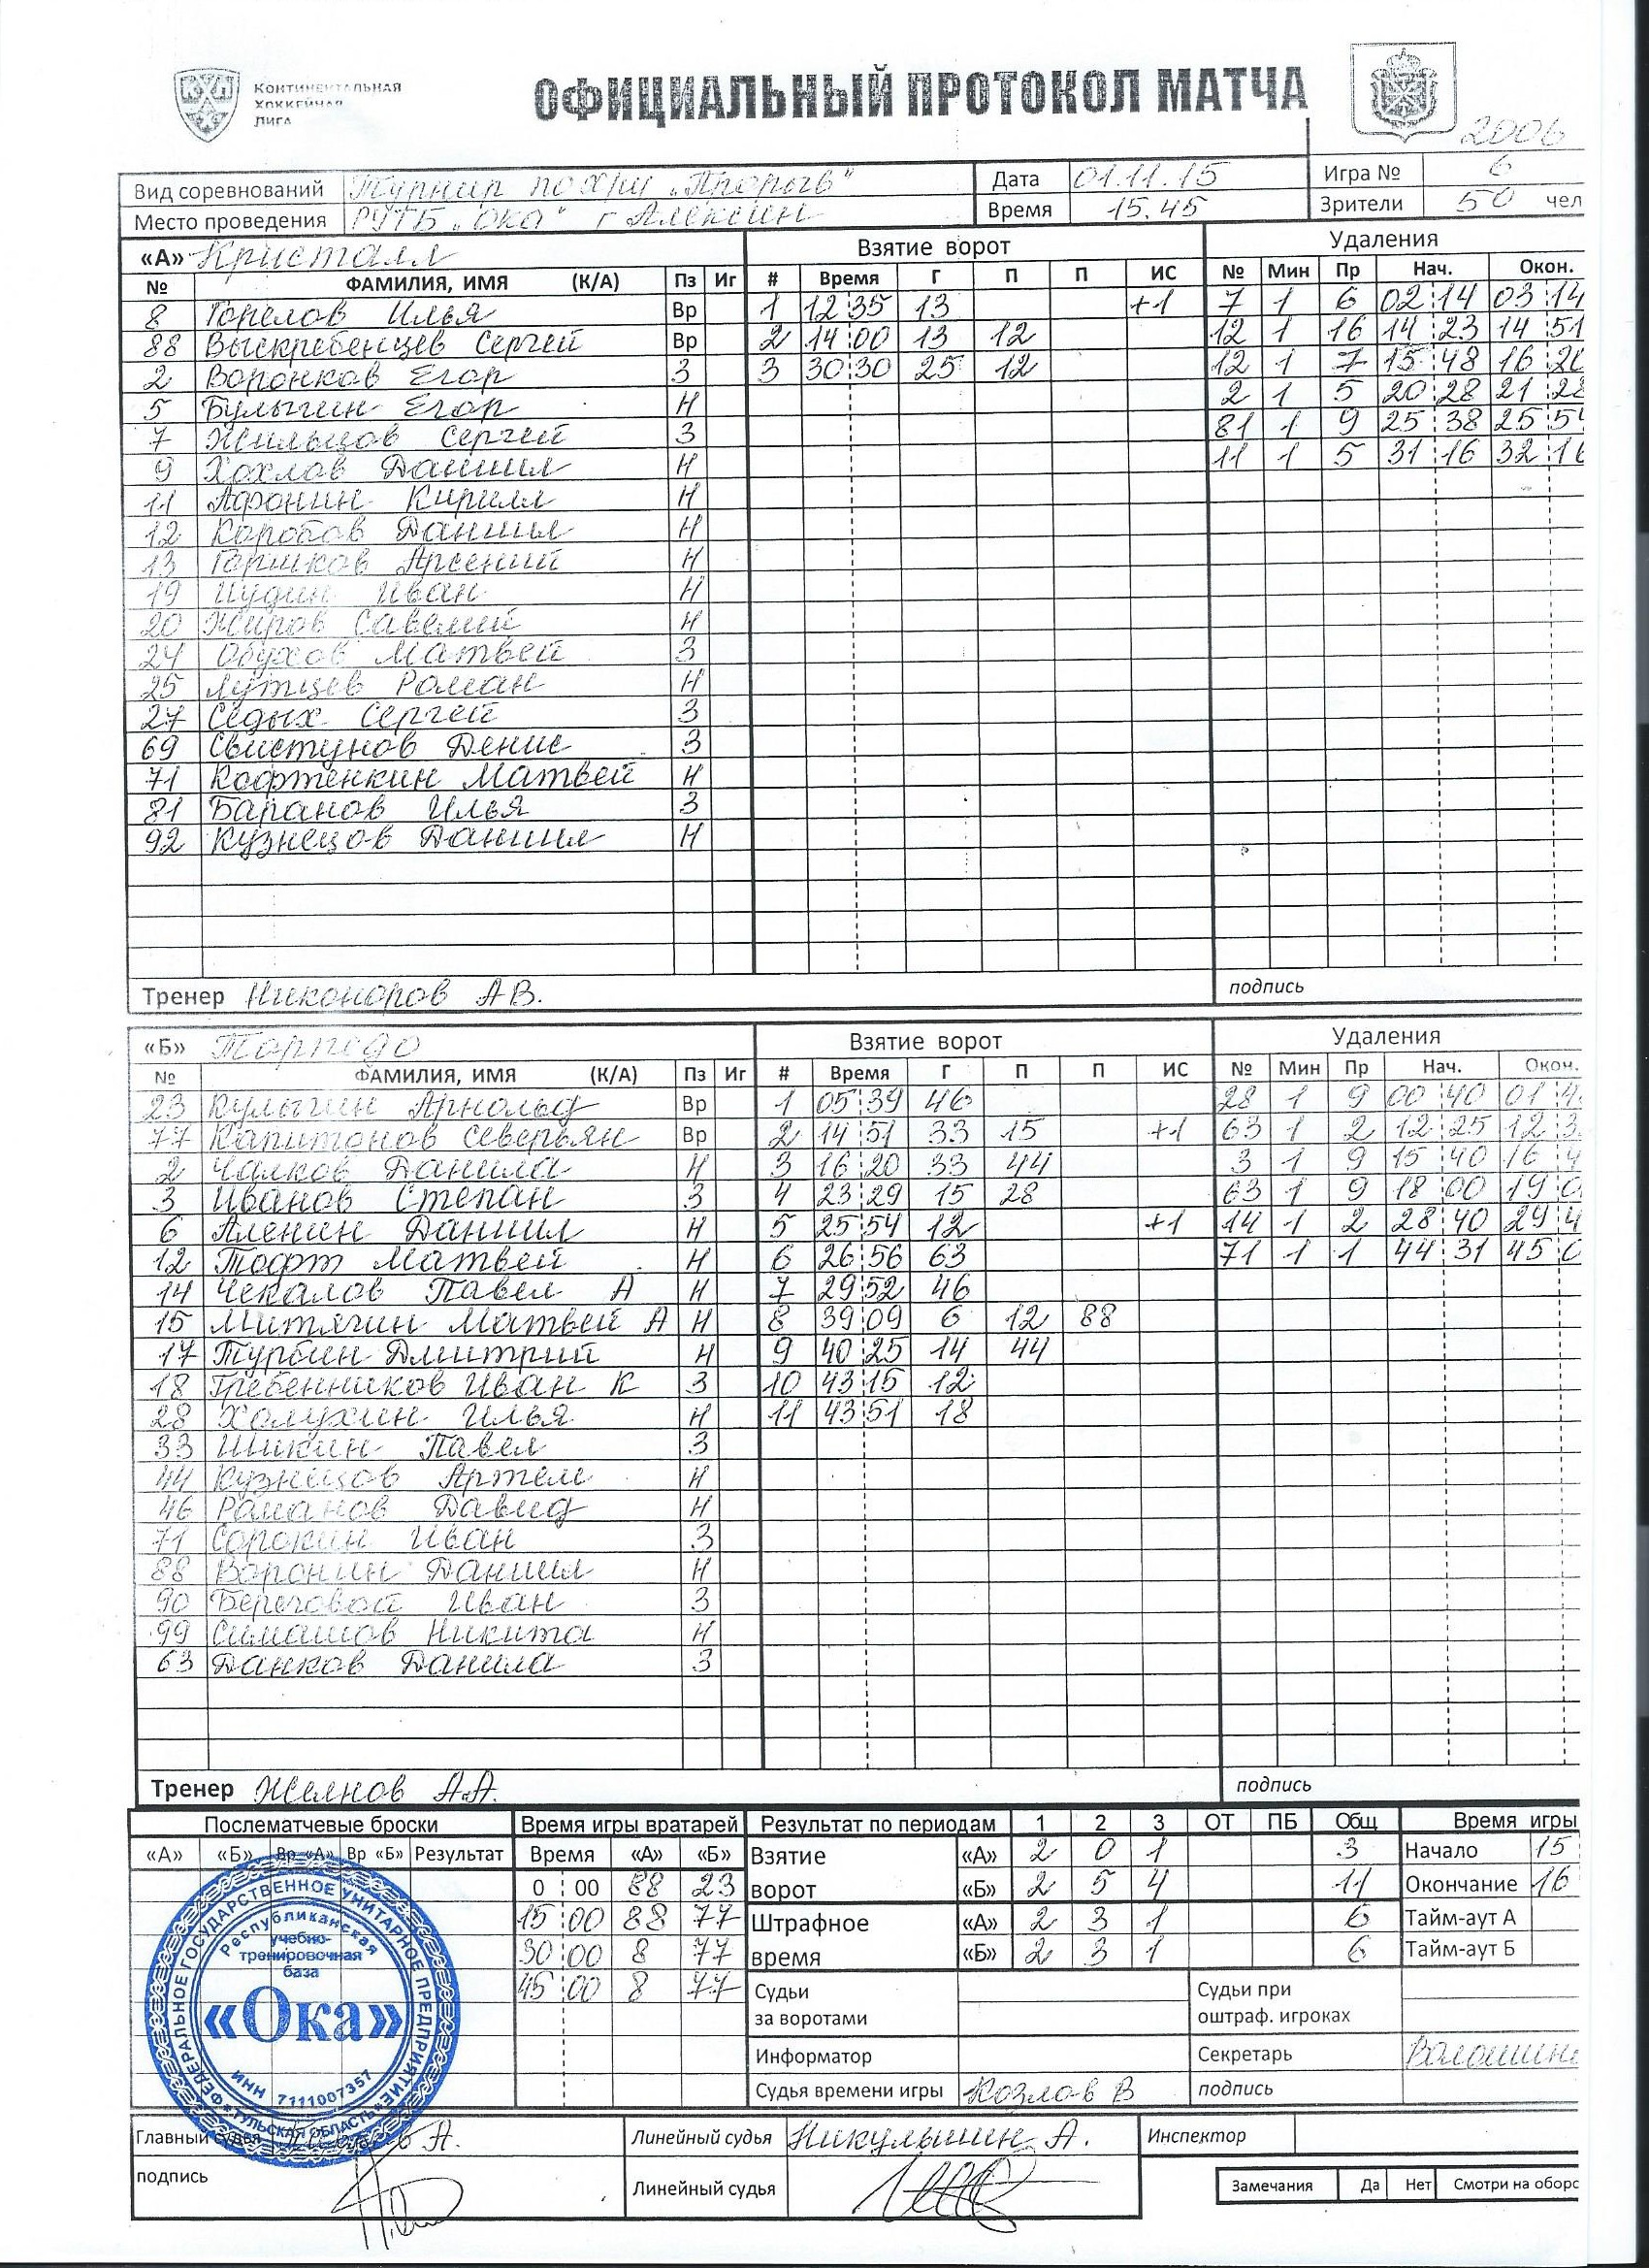 КОНТИНЕНТАЛЬНАЯ
ХОККЕЙНАЯ
ЛИГА
ОФИЦИАЛЬНЫЙ ПРОТОКОЛ МАТЧА
2006
Вид соревнований Турнир по х/ш „Прорыв" Дата 01.11.15 Игра № 6
Место проведения РУТБ „Ока" г Алексин Время 15.45 Зрители 50 чел
«А» Кристалл Взятие ворот Удаления
№ ФАМИЛИЯ, ИМЯ (К/А) Пз Иг # Время Г П П ИС № Мин Пр Нач. Окон.
8 Горелов Илья Вр 1 12 35 13 +1 7 1 6 02 14 03 14
88 Выскребенцев Сергей Вр 2 14 00 13 12 12 1 16 14 23 14 51
2 Воронков Егор З 3 30 30 25 12 12 1 7 15 48 16 20
5 Булыгин Егор Н 2 1 5 20 28 21 28
7 Жильцов Сергей З 81 1 9 25 38 25 54
9 Хохлов Даниил Н 11 1 5 31 16 32 16
11 Афонин Кирилл Н
12 Коробов Даниил Н
13 Горшков Арсений Н
19 Иван Н
20 Жиров Савелий Н
24 Обухов Матвей З
25 Роман Н
27 Седых Сергей З
69 Свистунов Денис З
71 Кофтенкин Матвей Н
81 Баранов Илья З
92 Кузнецов Даниил Н
Тренер Никоноров АВ. подпись
«Б» Торпедо Взятие ворот Удаления
№ ФАМИЛИЯ, ИМЯ (К/А) Пз Иг # Время Г П П ИС № Мин Пр Нач. Окон.
23 Кулыгин Арнольд Вр 1 05 39 46 28 1 9 00 40 01 4
77 Капитонов Северьян Вр 2 14 51 33 15 +1 63 1 2 12 25 12 3
2 Чалков Данила Н 3 16 20 33 44 3 1 9 15 40 16 4
3 Иванов Степан З 4 23 29 15 28 63 1 9 18 00 19 0
6 Аленин Даниил Н 5 25 54 12 +1 14 1 2 28 40 29 4
12 Тофт Матвей Н 6 26 56 63 71 1 1 44 31 45 0
14 Чекалов Павел А Н 7 29 52 46
15 Митягин Матвей А Н 8 39 09 6 12 88
17 Турбин Дмитрий Н 9 40 25 14 44
18 Гребенников Иван К З 10 43 15 12
28 Холухин Илья Н 11 43 51 18
33 Шикин Павел З
44 Кузнецов Артем Н
46 Романов Давид Н
71 Сорокин Иван З
88 Воронин Даниил Н
90 Береговой Иван З
99 Симашов Никита Н
63 Данков Данила З
Тренер Желнов А.А. подпись
Послематчевые броски Время игры вратарей Результат по периодам 1 2 3 ОТ ПБ Общ Время игры
«А» «Б» Вр «А» Вр «Б» Результат Время «А» «Б» Взятие «А» 2 0 1 3 Начало 15
0 00 88 23 ворот «Б» 2 5 4 11 Окончание 16
15 00 88 77 Штрафное «А» 2 3 1 6 Тайм-аут А
30 00 8 77 время «Б» 2 3 1 6 Тайм-аут Б
45 00 8 77 Судьи за воротами Судьи при оштраф. игроках
Информатор Секретарь
Судья времени игры Козлов В подпись
ФЕДЕРАЛЬНОЕ ГОСУДАРСТВЕННОЕ УНИТАРНОЕ ПРЕДПРИЯТИЕ
Республиканская
учебно-
тренировочная
база
«Ока»
ИНН 7111007357
ТУЛЬСКАЯ ОБЛАСТЬ
Главный судья А. Линейный судья Никулышин А. Инспектор
подпись Линейный судья
Замечания Да Нет Смотри на оборо